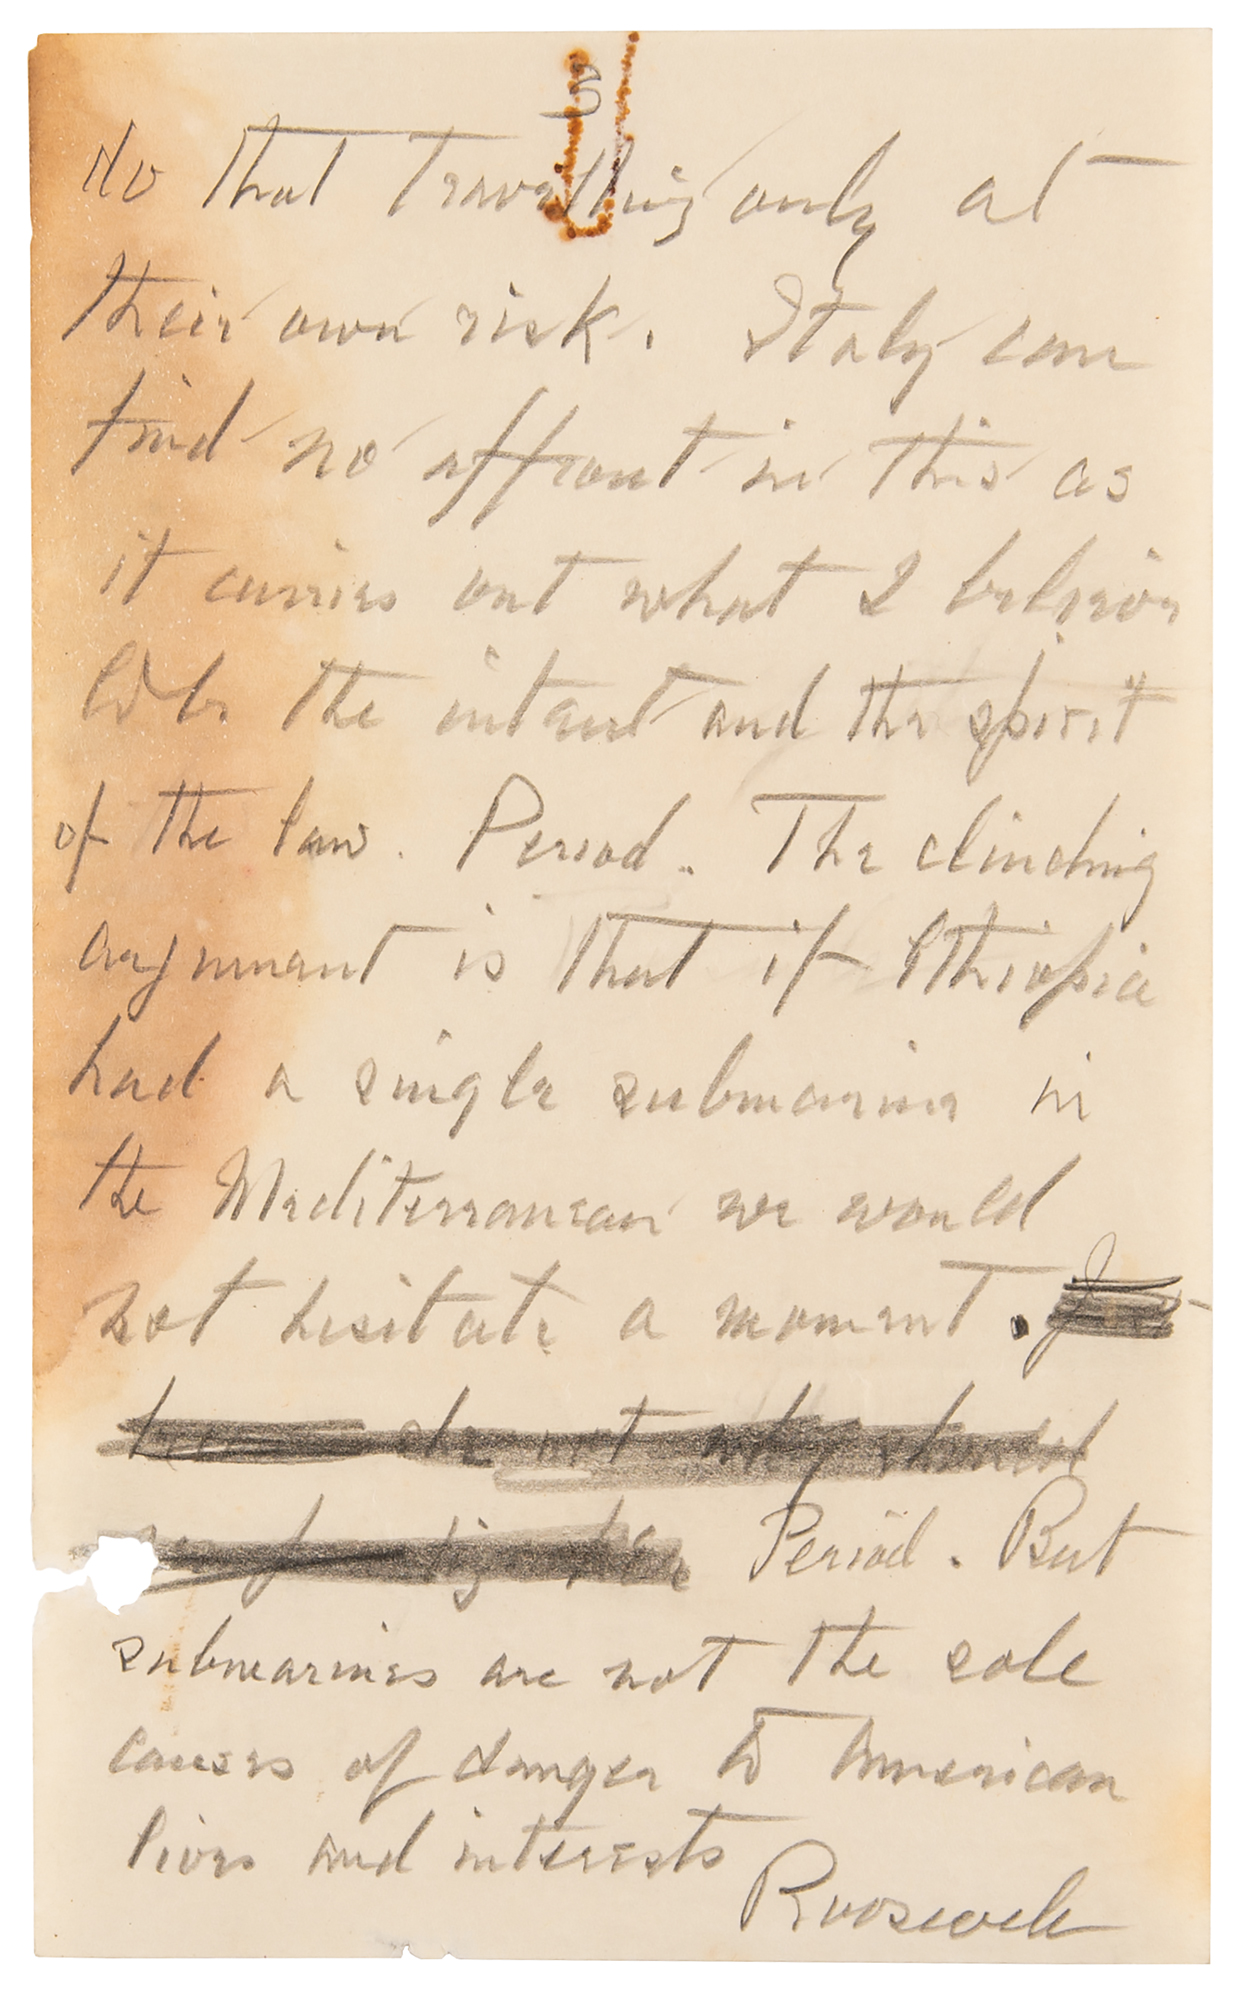 3
do that travelling only at
their own risk. Italy can
find no affront in this as
it carries out what I believe
to be the intent and the spirit
of the law. Period. The clinching
argument is that if Ethiopia
had a single submarine in
the Mediterranean we would
not hesitate a moment.
she not only should
Period. But
submarines are not the sole
causes of danger to American
lives and interests
Roosevelt